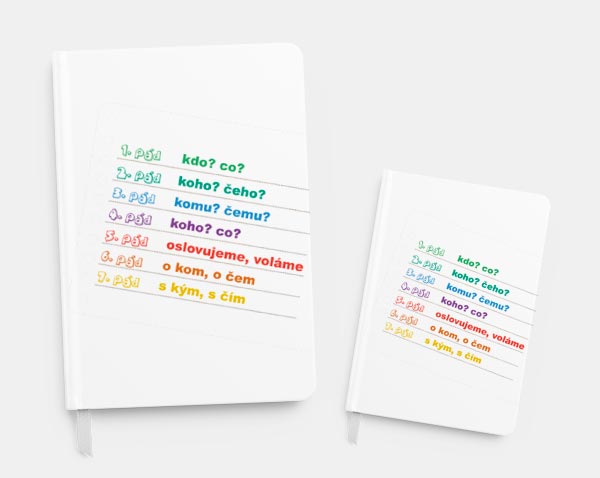 1. pád kdo? co?
2. pád koho? čeho?
3. pád komu? čemu?
4. pád koho? co?
5. pád oslovujeme, voláme
6. pád o kom, o čem
7. pád s kým, s čím
1. pád kdo? co?
2. pád koho? čeho?
3. pád komu? čemu?
4. pád koho? co?
5. pád oslovujeme, voláme
6. pád o kom, o čem
7. pád s kým, s čím